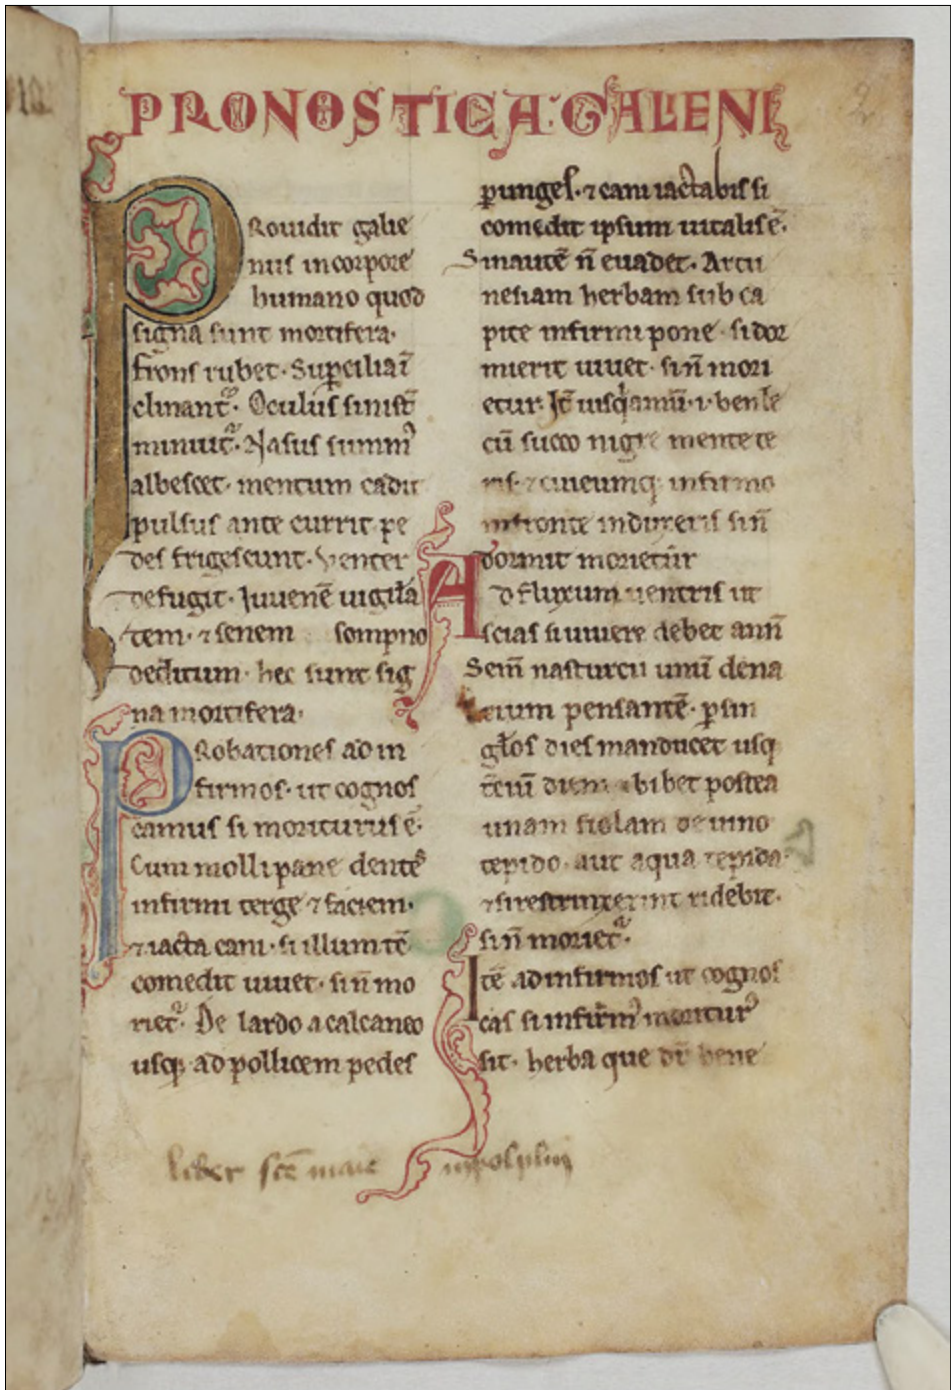 PRONOSTICA GALENI
PRouidit galie
nus in corpore
humano quod
signa sunt mortifera.
frons rubet. Supcilia ī
clinant᷑. Oculus sinist̄
minuit᷑. Nasus summꝰ
albescet. mentum cadit
pulsus ante currit pe
des frigescunt. venter
defugit. Iuuenē uigila
tem. ⁊ senem sompno
deditum. hec sunt sig
na mortifera.
PRobationes ad in
firmos. ut cognos
camus si moriturus ē.
Cum molli pane dentes
infirmi terge ⁊ faciem.
⁊ iacta cani. si illum tē
comedit uiuet. sin̄ mo
riet᷑. De lardo a calcaneo
usq; ad pollicem pedes
ꝑunges. ⁊ cani iactabis si
comedit ipsum uitalis ē.
Sin autē n̄ euadet. Arti
nesiam herbam sub ca
pite infirmi pone. si dor
mierit uiuet. sin̄ mori
etur. It̄ .i. benle
cū succo nigre mente te
ris. ⁊ cuicumq; infirmo
in fronte induxeris sin̄
dormit morietur
Ad fluxum uentris ut
scias si uiuere debet ann̄
Sem̄ nasturcii unū dena
rium pensantē. ꝑ sin
glos dies manducet usq
t̄ciū diem bibet postea
unam fiolam de uino
tepido. aut aqua tepida.
⁊ si restrinxerint ridebit.
sin̄ moriet᷑.
Itē ad infirmos ut cognos
cas si infirmꝰ moriturꝰ
sit. herba que dr̄ bene
liber sc̄e marie